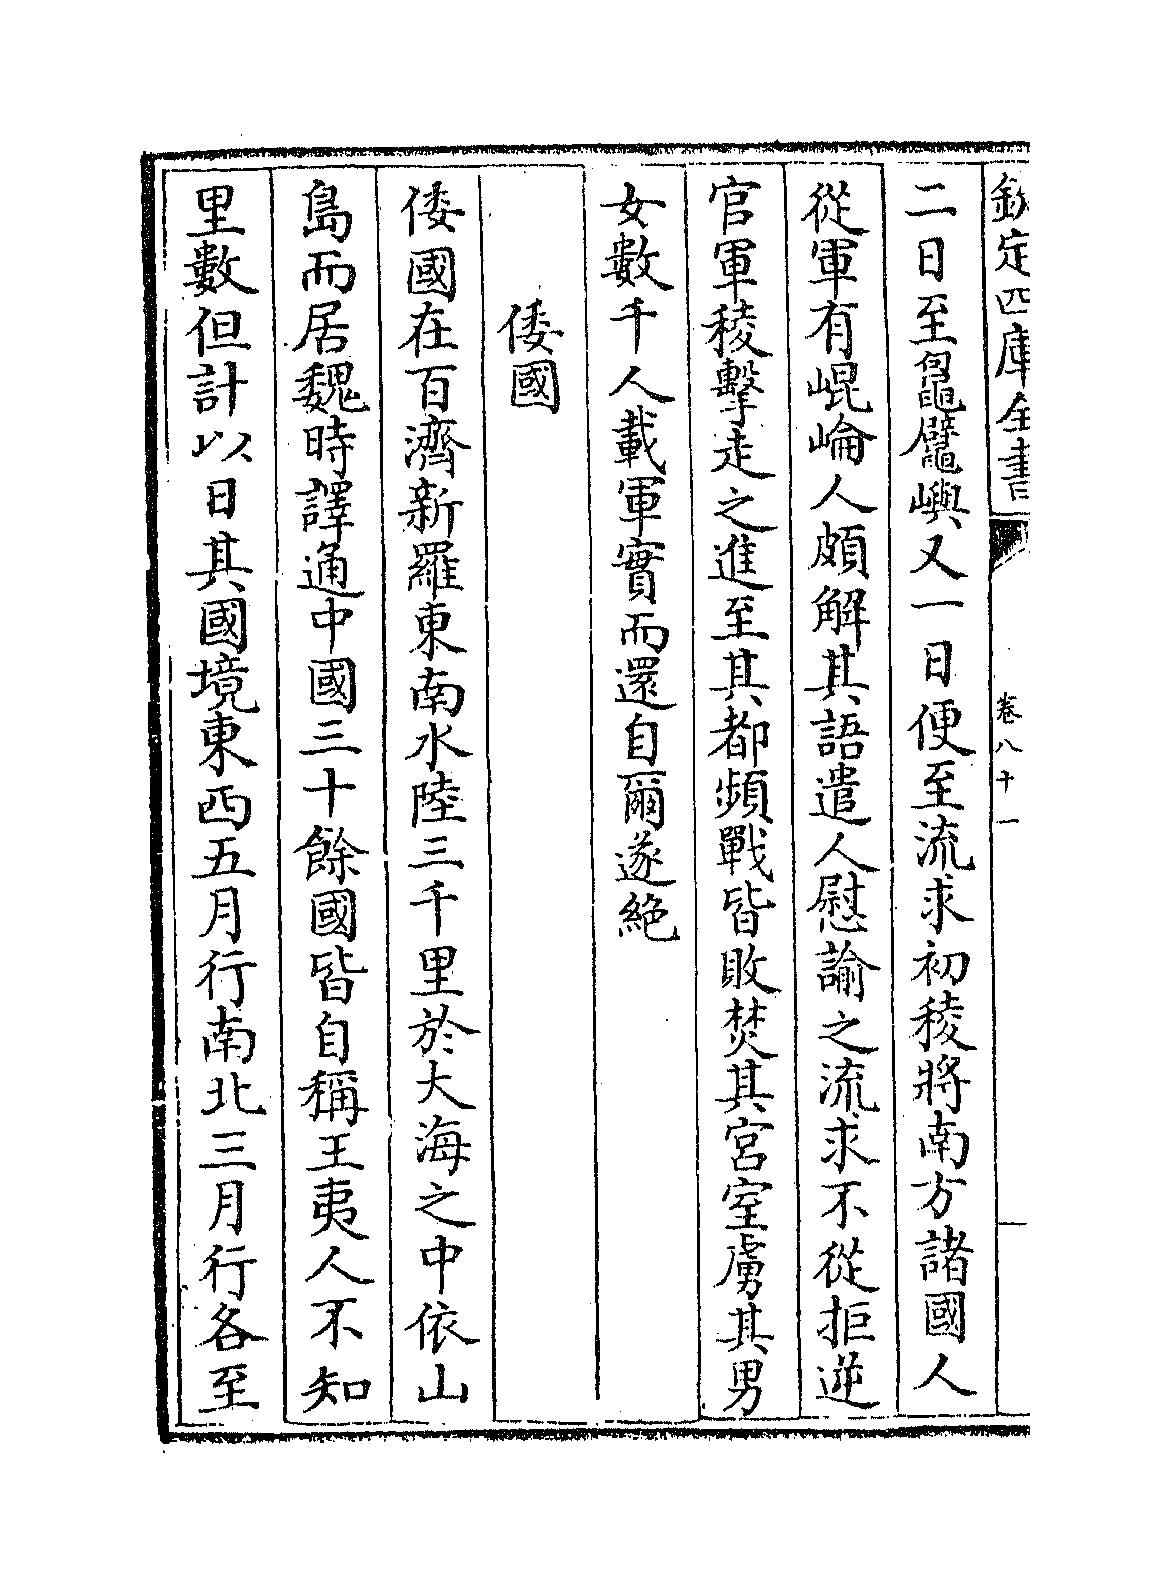 欽定四庫全書
卷八十一
二日至鼊嶼又一日便至流求初稜將南方諸國人
從軍有崐崘人頗解其語遣人慰諭之流求不從拒逆
官軍稜擊走之進至其都頻戰皆敗焚其宮室虜其男
女數千人載軍實而還自爾遂絶
倭國
倭國在百濟新羅東南水陸三千里於大海之中依山
島而居魏時譯通中國三十餘國皆自稱王夷人不知
里數但計以日其國境東西五月行南北三月行各至